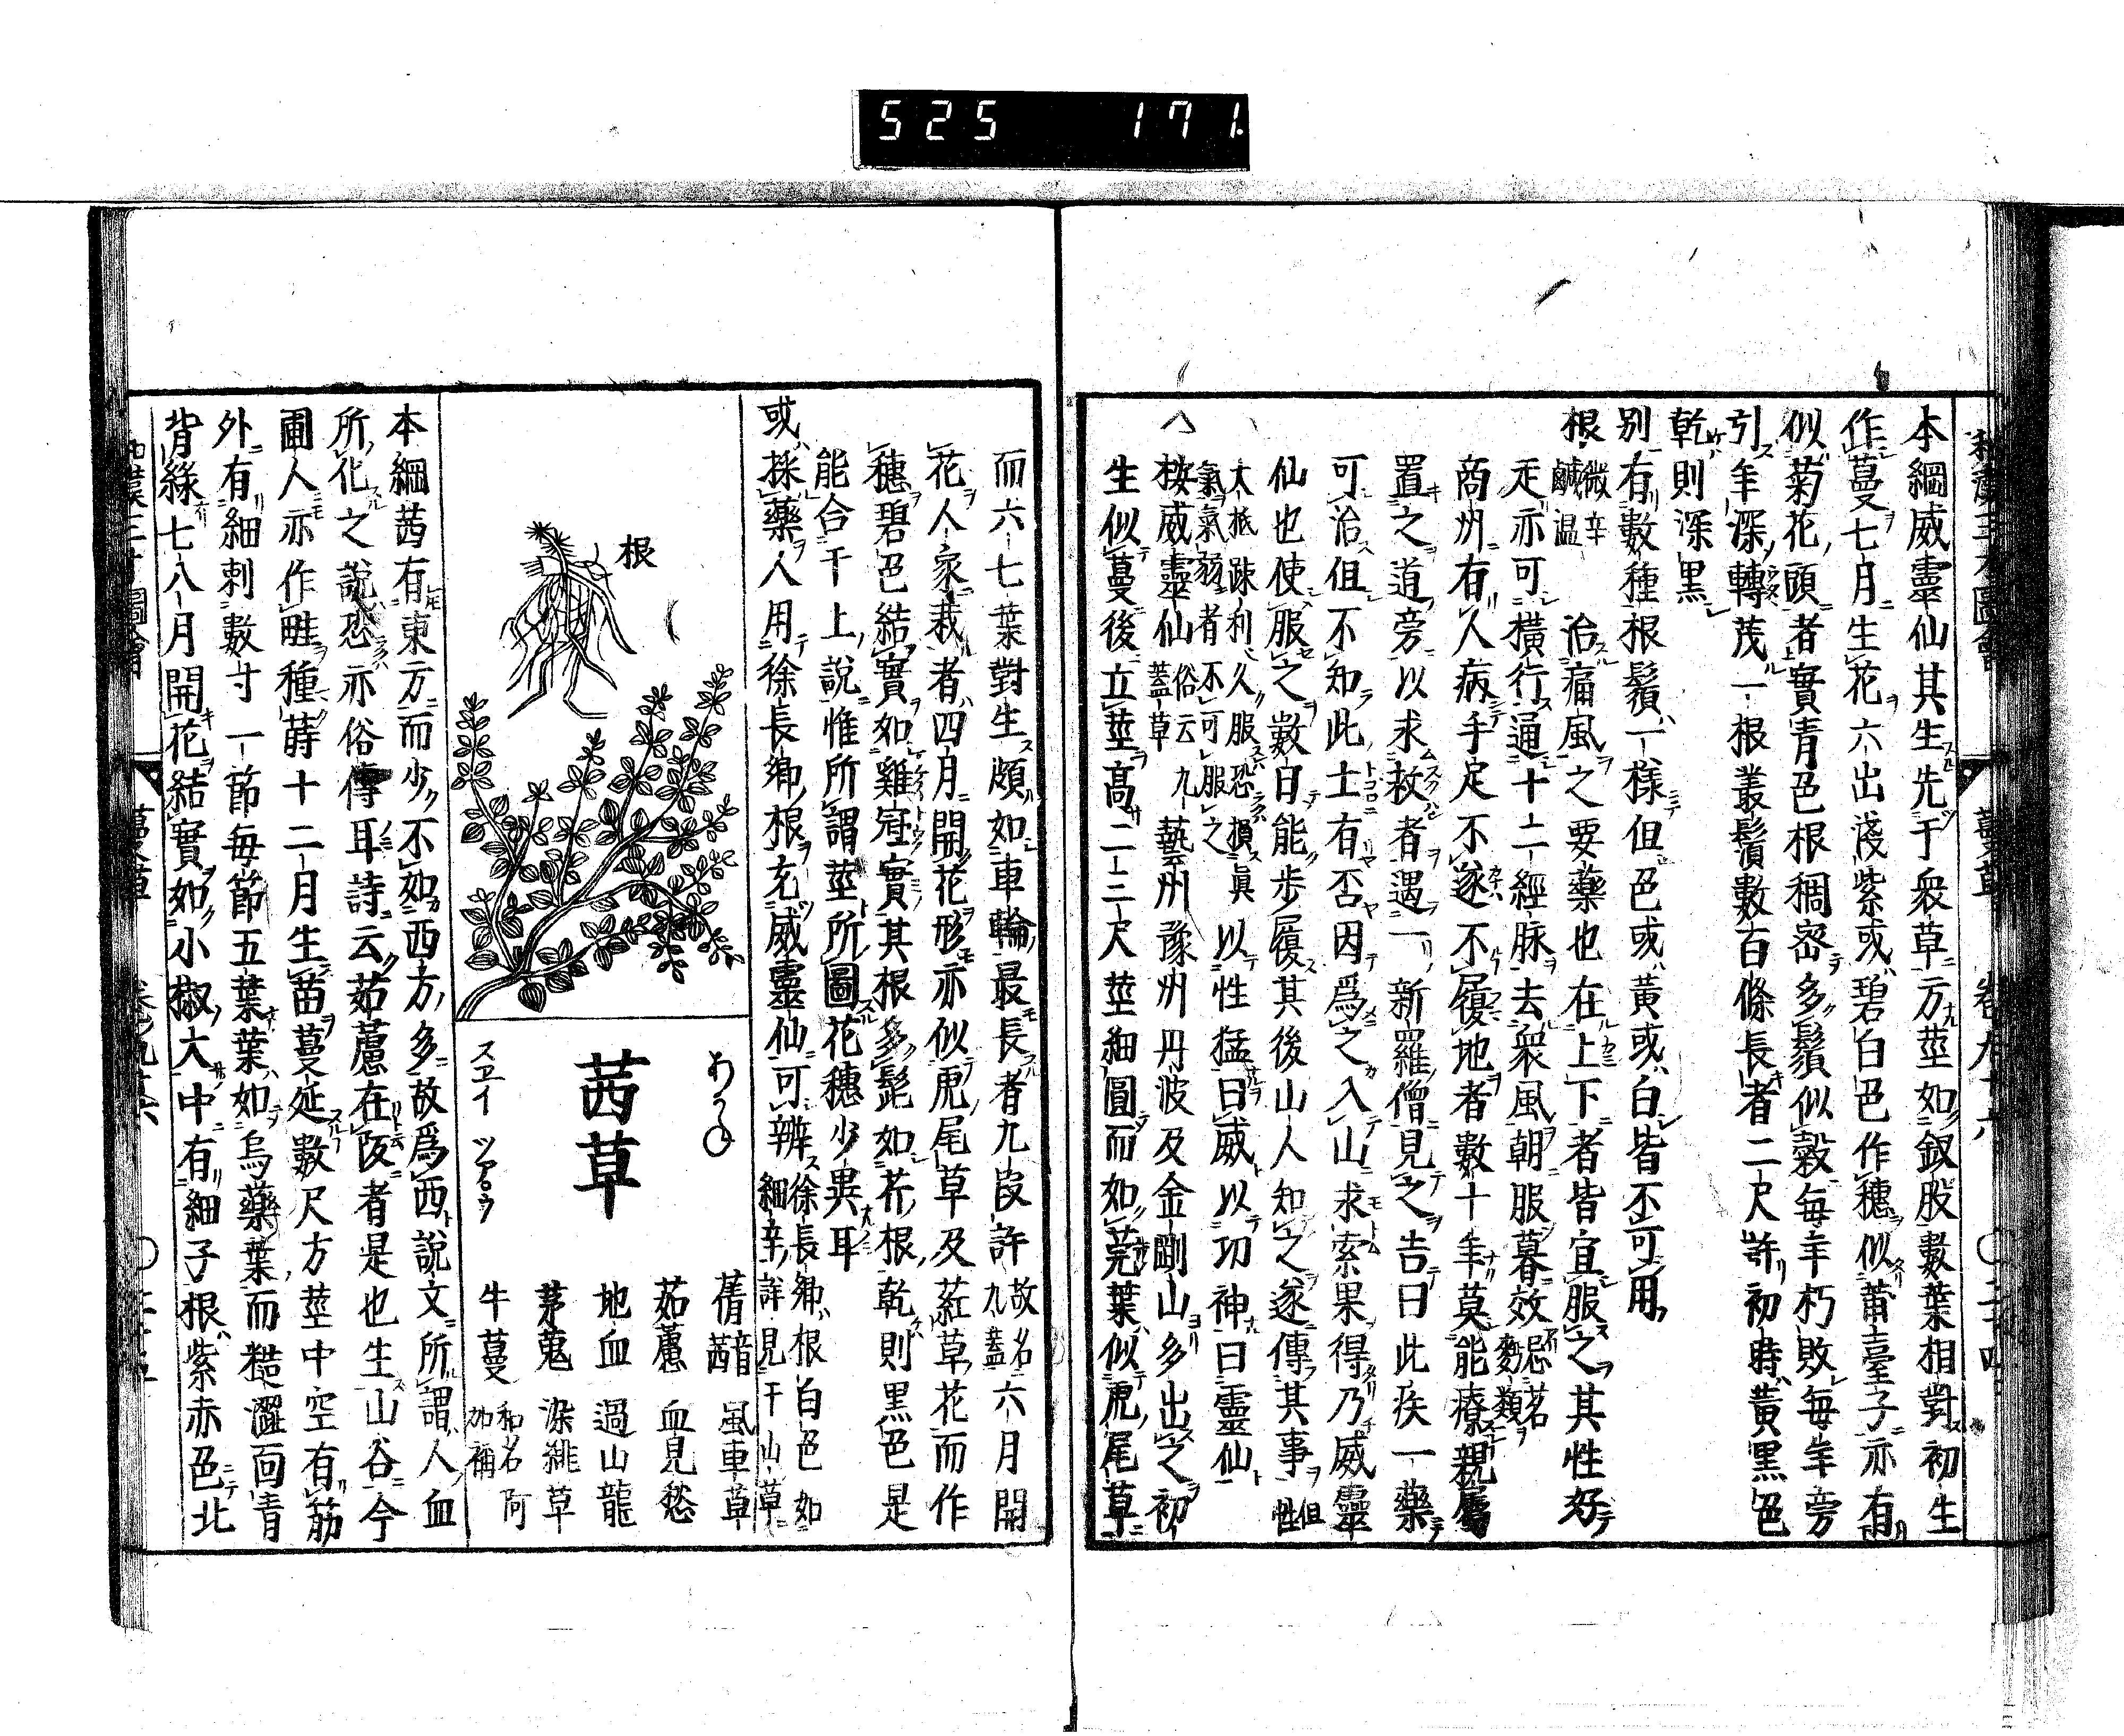 525 171
本綱威靈仙其生先于衆草方莖如釵股數葉相對初生
作蔓七月生花六出淺紫或碧白色作穗似莆臺子亦有
似菊花頭者實青色根稠密多鬚似穀每年朽敗每年旁
引年深轉茂一根叢鬚數百條長者二尺許初時黃黑色
乾則深黑
別有數種根鬚一樣但色或黃或白皆不可用
根 微辛鹹温 治痛風之要藥也在上下者皆宜服之其性好
走亦可橫行通十二經脉去衆風朝服暮效 忌茗麪類
商州有人病手足不遂不履地者數十年莫能療親屬
置之道旁以求救者遇一新羅僧見之告曰此疾一藥
可治但不知此土有否因爲之入山求索果得乃威靈
仙也使服之數日能步履其後山人知之遂傳其事 但性
大抵踈利久服恐損眞氣氣弱者不可服之 以性猛曰威以功神曰靈仙
△按威靈仙 俗云九蓋草 藝州豫州丹波及金剛山多出之初
生似蔓後立莖高二三尺莖細圓而如莞葉似虎尾草
蔓草 卷九十六
而六七葉對生頗如車輪最長者九段許 故名九蓋 六月開
花人家栽者四月開花形亦似虎尾草及葒草花而作
穗碧色結實如雞冠實其根多髭如芥根乾則黑色是
能合于上說惟所謂莖所圖花穗少異耳
或採藥人用徐長卿根充威靈仙可辨 徐長卿根白色如細辛詳見于山草
根
あかね
茜草
スヱイ ツアウ
蒨 茜 風車草
茹藘 血見愁
地血 過山龍
茅蒐 染緋草
牛蔓 和名阿加禰
本綱茜有東方而少不如西方多故爲西說文所謂人血
所化之說恐亦俗傳耳詩云茹藘在阪者是也生山谷今
圃人亦作畦種蒔十二月生苗蔓延數尺方莖中空有筋
外有細刺數寸一節每節五葉葉如烏藥葉而糙澀面青
背綠七八月開花結實如小椒大中有細子根紫赤色北